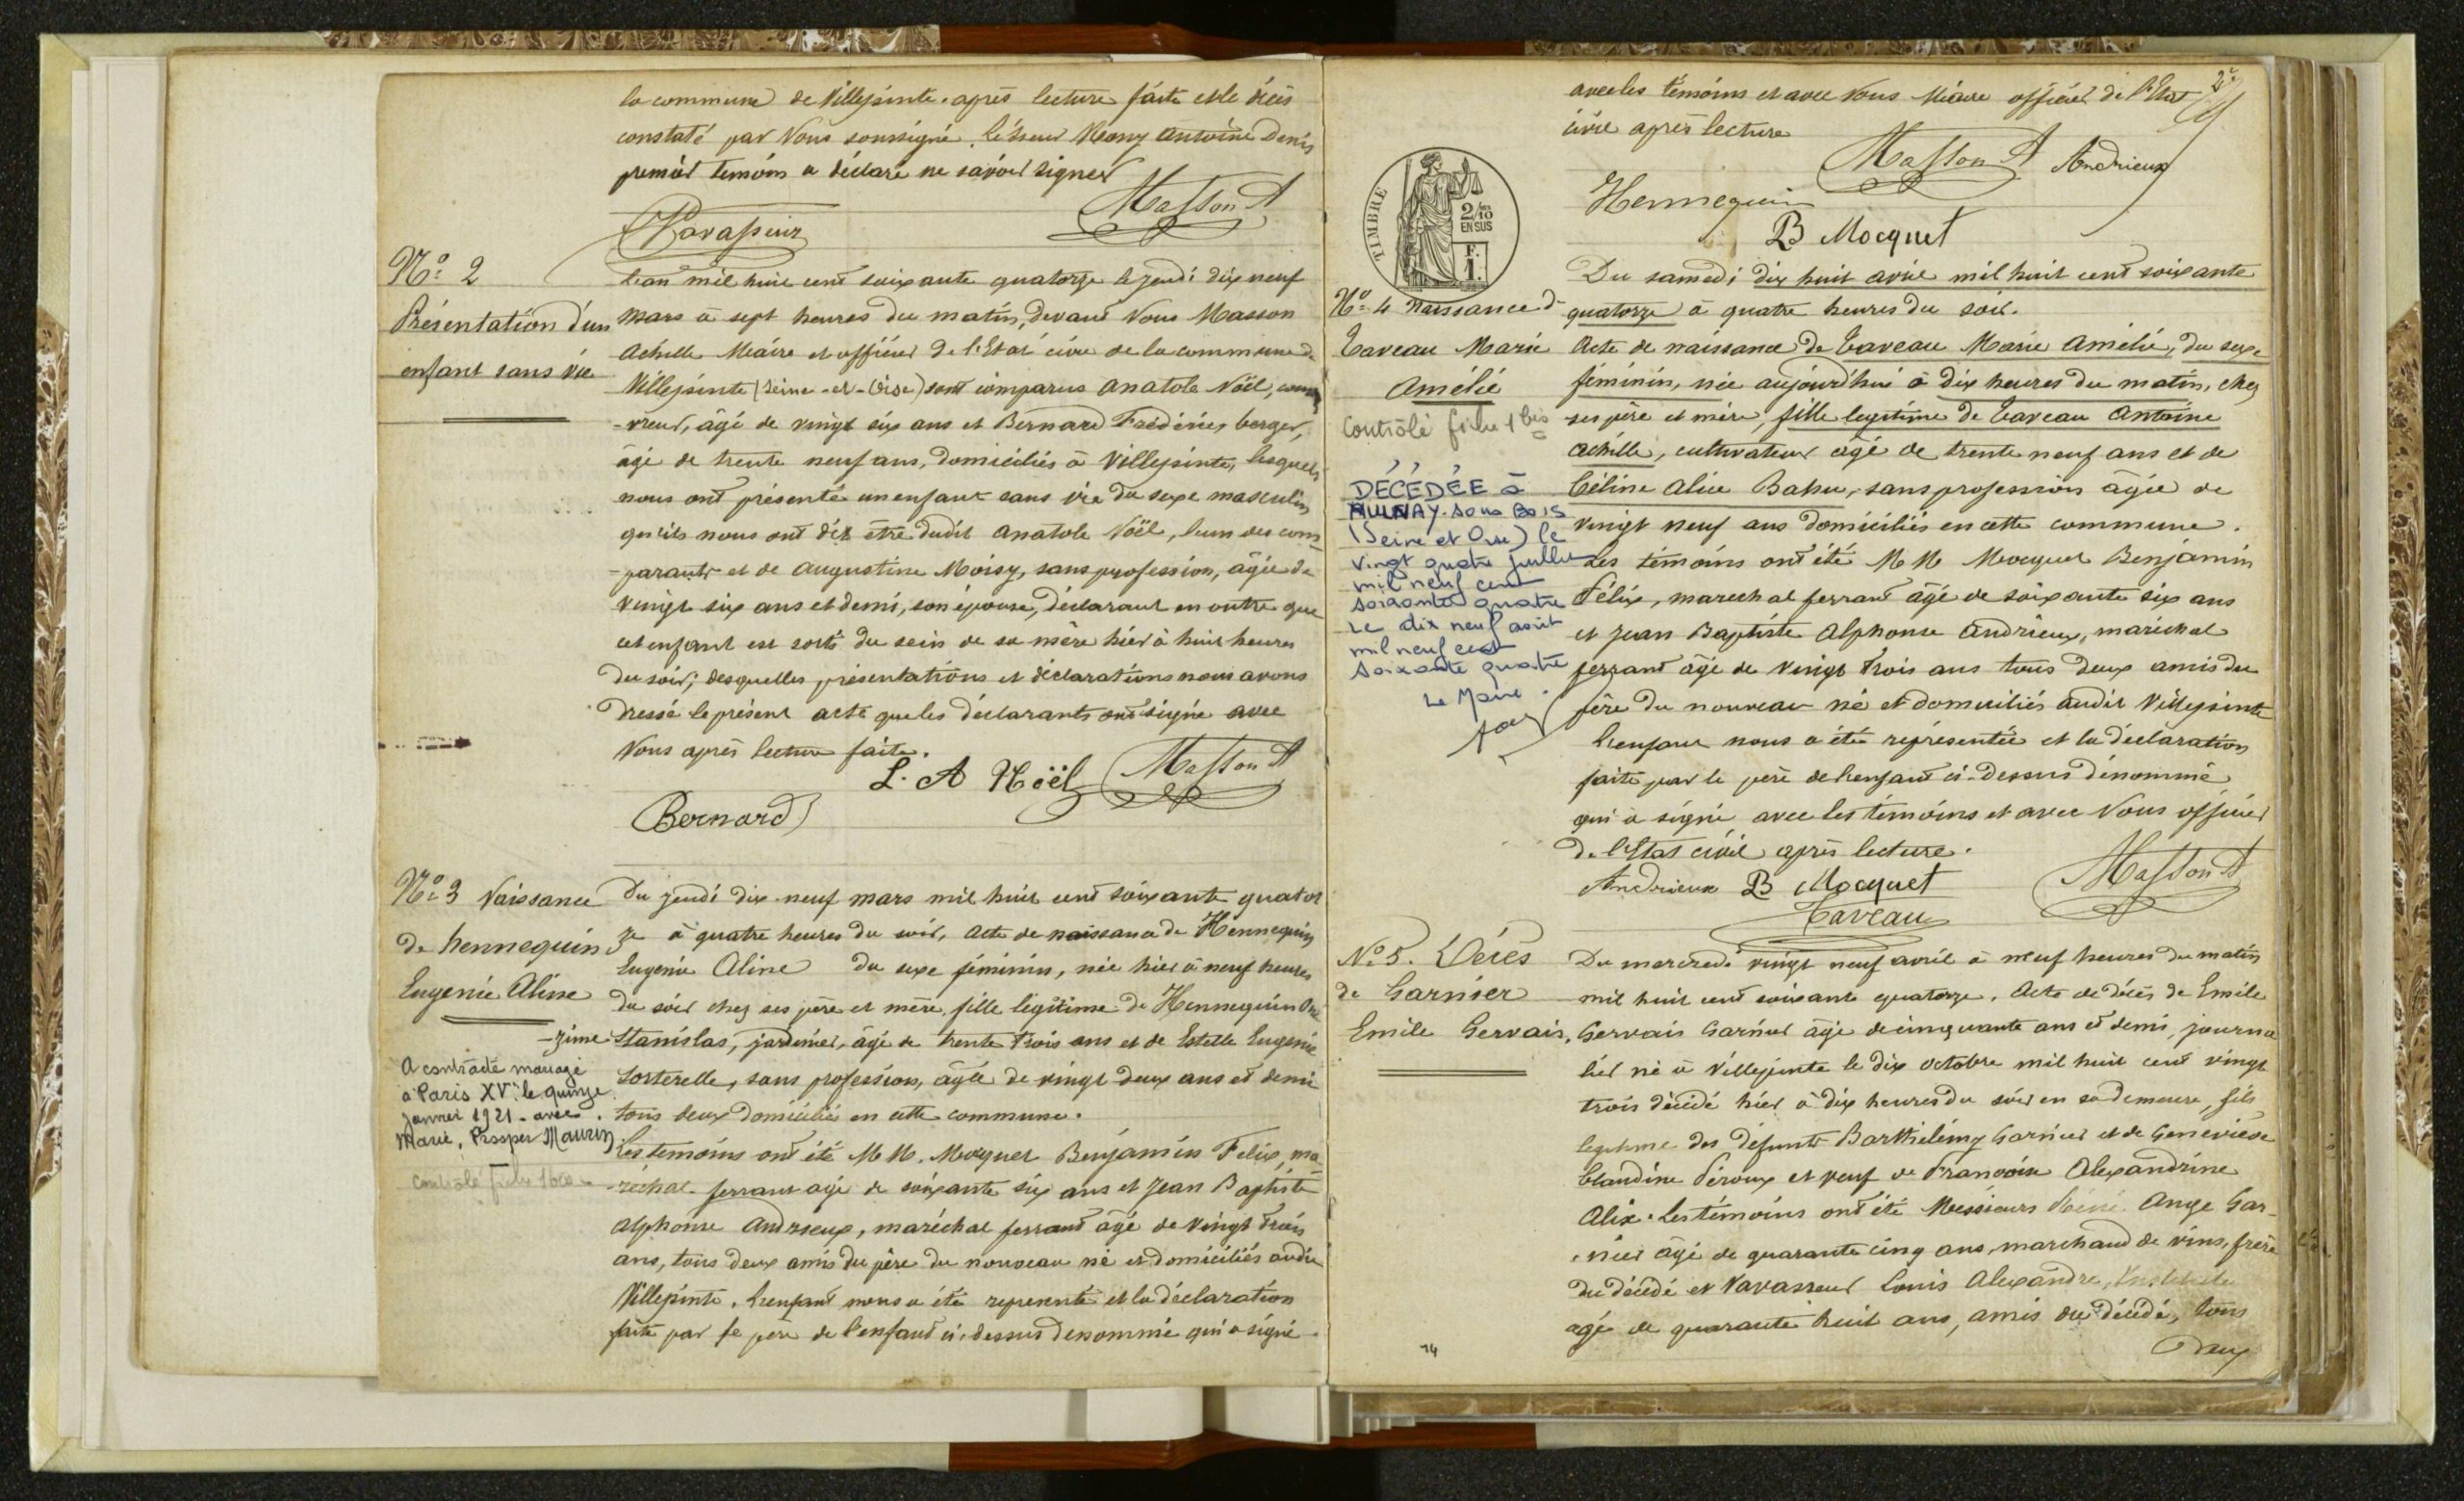 la commune de Villepinte. après lecture faite et le décès
constaté par Nous soussigné. le sieur Mony Antoine Denis
premier témoin a déclaré ne savoir signer
Vavasseur Masson A
N° 2
Présentation d'un
enfant sans vie
L'an mil huit cent soixante quatorze le jeudi dix neuf
mars à sept heures du matin, devant Nous Masson
Achille Maire et officier de l'Etat civil de la commune de
Villepinte (Seine-et-Oise) sont comparus Anatole Noël, couv
-vreur, âgé de vingt six ans et Bernard Frédéric, berger,
âgé de trente neuf ans, domiciliés à Villepinte, lesquels
nous ont présenté un enfant sans vie du sexe masculin
qu'ils nous ont dit être dudit Anatole Noël, l'un des com
-parants et de Augustine Moisy, sans profession, âgée de
vingt six ans et demi, son épouse, déclarant en outre que
cet enfant est sorti du sein de sa mère hier à huit heures
du soir; desquelles présentations et déclarations nous avons
dressé le présent acte que les déclarants ont signé avec
Nous après lecture faite.
L. A Noël Masson A
Bernard
N° 3 Naissance
de hennequin
Eugenie Aline
A contracté mariage
à Paris XV. le quinze
Janvier 1921 - avec
Marie, Prosper Maurin
Contrôlé fiche
Du jeudi dix-neuf mars mil huit cent soixante quator
ze à quatre heures du soir, acte de naissance de Hennequin
Eugenie Aline du sexe féminin, née hier à neuf heures
du soir chez ses père et mère, fille légitime de Hennequin Oné
-zime Stanislas, jardinier, âgé de trente trois ans et de Estelle Eugenie
Sorterelle, sans profession, âgée de vingt deux ans et demi
tous deux domiciliés en cette commune.
Les témoins ont été M M. Mocquet Benjamin Felix, ma
-réchal-ferrant agé de soixante six ans et Jean Baptiste
Alphonse Andrieux, maréchal ferrant âgé de vingt trois
ans, tous deux amis du père du nouveau né et domiciliés audit
Villepinte. L'enfant nous a été representé et la déclaration
faite par le père de l'enfant ci-dessus dénommé qui a signé
2e
avec les témoins et avec Nous Maire officier de l'Etat
civil après lecture
Masson A Andrieux
Hennequin
B Mocquet
TIMBRE
2/10
EN SUS
F.
1.
N° 4 Naissance d
Taveau Marie
Amélie
Contrôlé fiche 1 bis
DÉCÉDÉE à
AULNAY-sous Bois
(Seine et Oise) le
vingt quatre juillet
mil neuf cent
soixante quatre
Le dix neuf août
mil neuf cent
soixante quatre
Le Maire.
Du samedi dix huit avril mil huit cent soixante
quatorze à quatre heures du soir.
Acte de naissance de Taveau Marie Amélie, du sexe
féminin, née aujourd'hui à dix heures du matin, chez
ses père et mère, fille légitime de Taveau Antoine
Achille, cultivateur âgé de trente neuf ans et de
Céline Alice Bahu, sans profession âgée de
vingt neuf ans domiciliés en cette commune.
Les témoins ont été M M Mocquet Benjamin
Félix, marechal ferrant âgé de soixante six ans
et Jean Baptiste Alphonse Andrieux, maréchal
ferrant âgé de vingt trois ans tous deux amis du
père du nouveau né et domiciliés audit Villepinte
L'enfant nous a été représentée et la déclaration
faite par le père de l'enfant ci-dessus dénommé
qui a signé avec les témoins et avec Nous officier
de l'Etat civil après lecture.
Andrieux B Mocquet Masson A
Taveau
N° 5. Décès
de Garnier
Emile Gervais,
Du mercredi vingt neuf avril à neuf heures du matin
mil huit cent soixante quatorze. Acte de décès de Emile
Gervais Garnier âgé de cinquante ans et demi, journa
lier né à Villepinte le dix octobre mil huit cent vingt
trois décédé hier à dix heures du soir en sa demeure, fils
légitime des défunts Barthélémy Garnier et de Geneviève
Blandine Péroux et veuf de Françoise Alexandrine
Alix. Les témoins ont été Messieurs Ange Gar-
-nier âgé de quarante cinq ans, marchand de vins, frère
du décédé et Vavasseur Louis Alexandre,
agé de quarante huit ans, amis du décédé, tous
deux
14